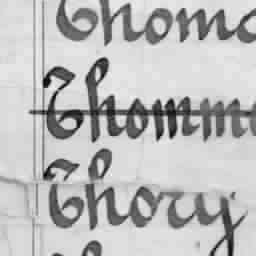 Thoma
Thomme
Thory